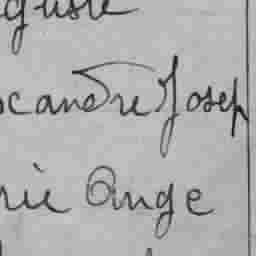 guste
xandre Josep
rie Ange